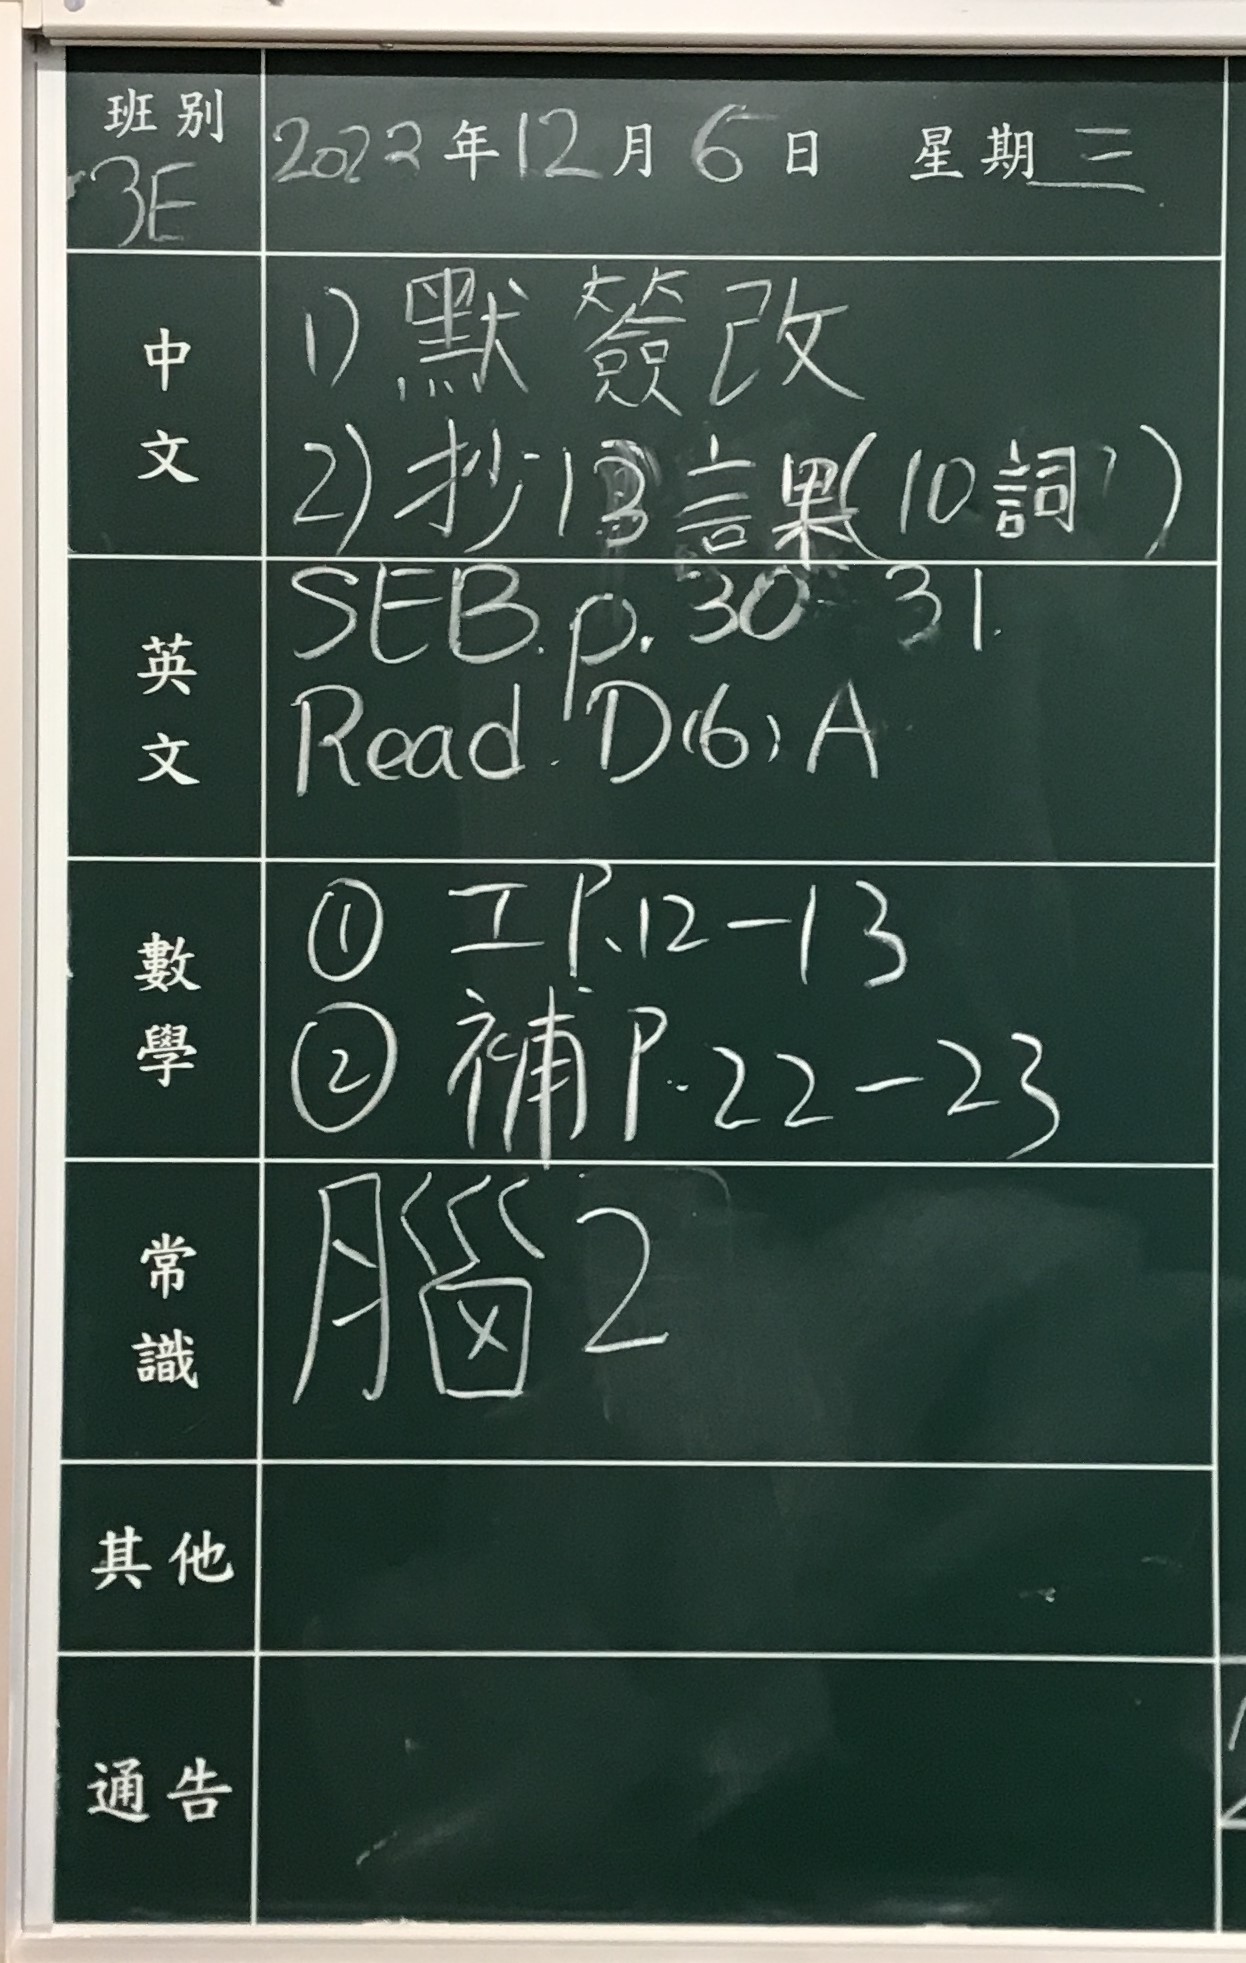 班別 3E
2023年12月6日 星期三
中文
1) 默簽改
2) 抄13課(10詞)
英文
SEB. p. 30-31.
Read. D(6) A
數學
① 工P.12-13
② 補P.22-23
常識
腦2
其他
通告